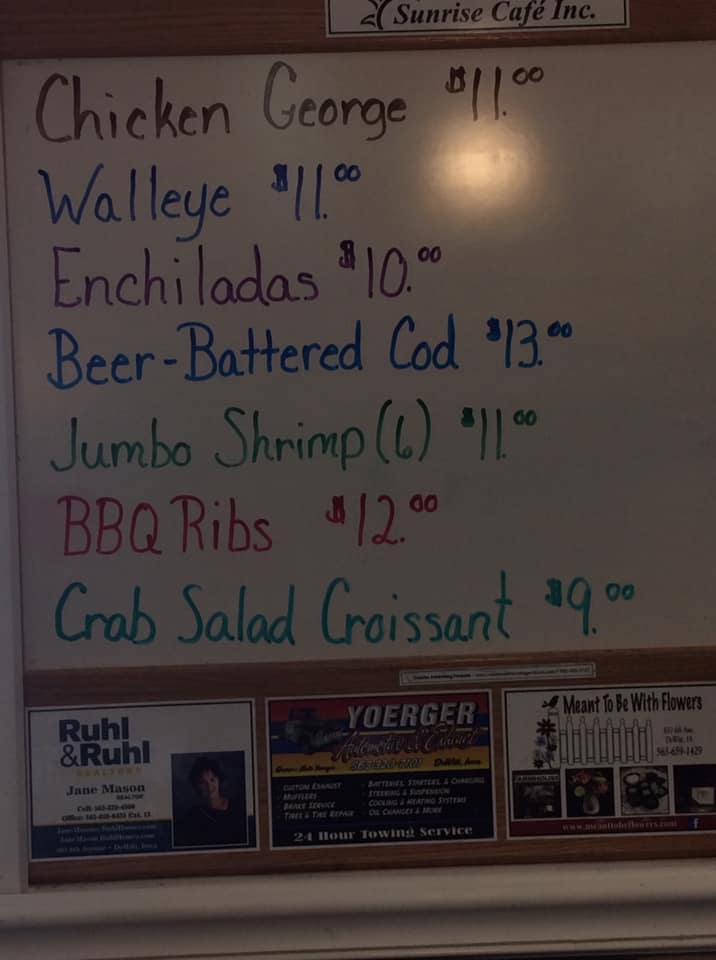 Sunrise Café Inc.
Chicken George $11.00
Walleye $11.00
Enchiladas $10.00
Beer-Battered Cod $13.00
Jumbo Shrimp (6) $11.00
BBQ Ribs $12.00
Crab Salad Croissant $9.00
Ruhl
&Ruhl
REALTORS
Jane Mason
REALTOR
YOERGER
Automotive & Exhaust
563-320-7701 DeWitt, Iowa
CUSTOM EXHAUST
MUFFLERS
BRAKE SERVICE
TIRES & TIRE REPAIR
BATTERIES, STARTERS, & CHARGING
STEERING & SUSPENSION
COOLING & HEATING SYSTEMS
OIL CHANGES & MORE
24 Hour Towing Service
Meant To Be With Flowers
DeWitt, IA
563-659-1429
www.meanttobeflowers.com f